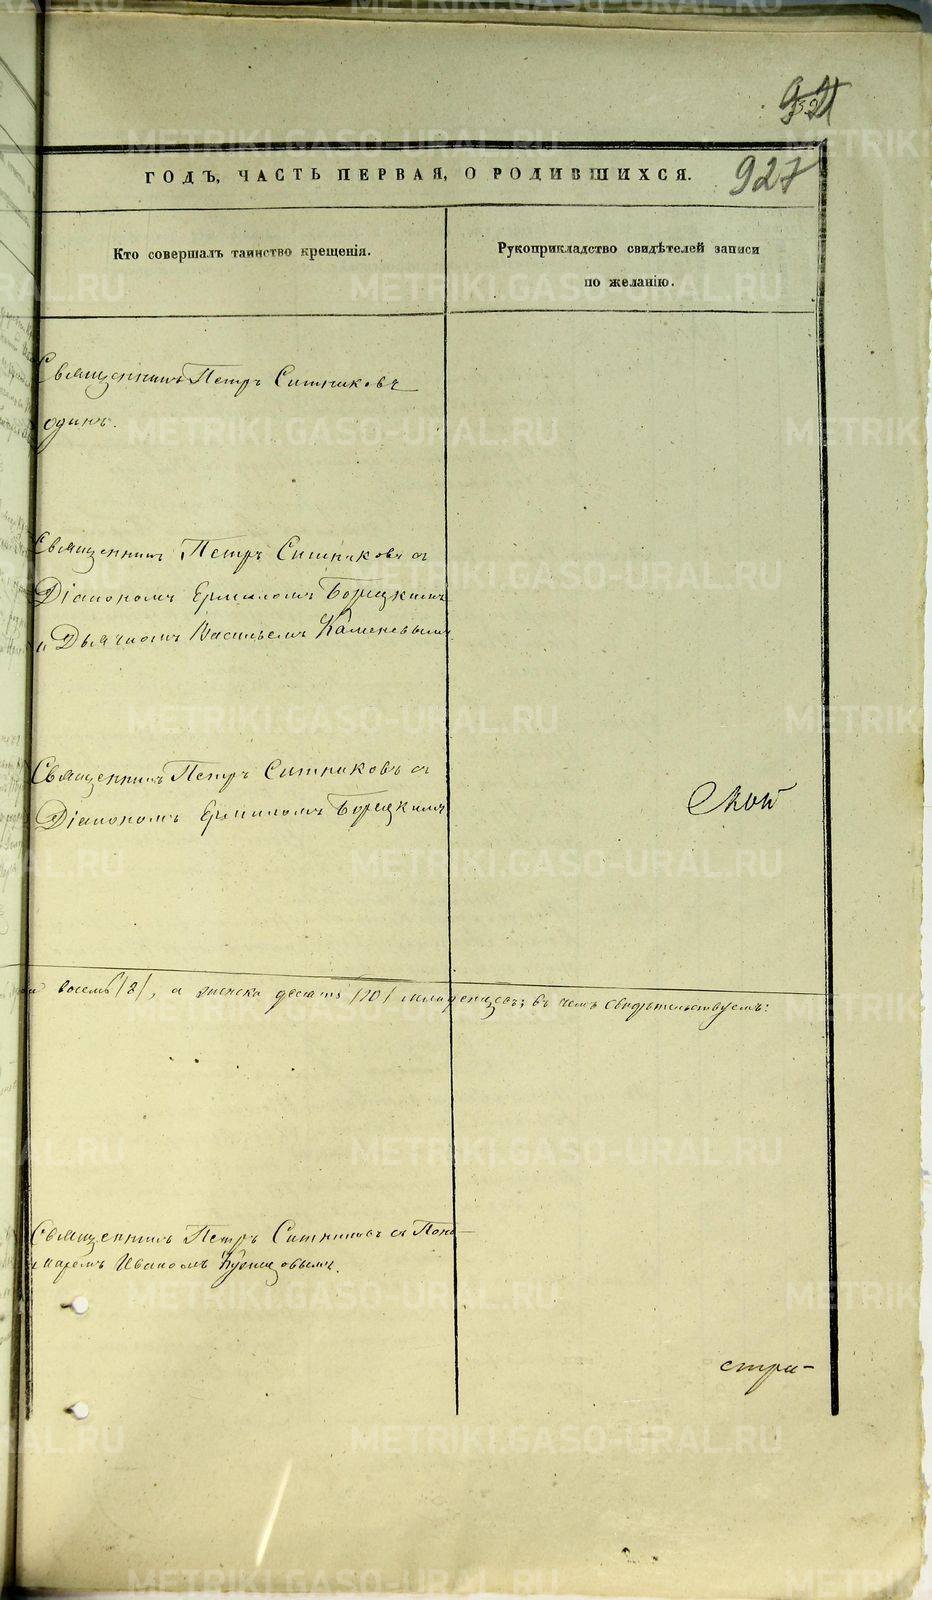 927
ГОДЪ, ЧАСТЬ ПЕРВАЯ, О РОДИВШИХСЯ.
Кто совершалъ таинство крещенія.
Рукоприкладство свидѣтелей записи
по желанію.
Священникъ Петръ Ситниковъ
одинъ.
Священникъ Петръ Ситниковъ съ
Діакономъ Ермиломъ Борецкимъ
и Дьячкомъ Васильемъ Каменевымъ
Священникъ Петръ Ситниковъ съ
Діакономъ Ермиломъ Борецкимъ
ской
восемь /8/, а женска десять /10/ младенцевъ; въ чемъ свидѣтельствуемъ:
Священникъ Петръ Ситниковъ съ Поно-
маремъ Иваномъ Кузнецовымъ.
стра-
METRIKI.GASO-URAL.RU